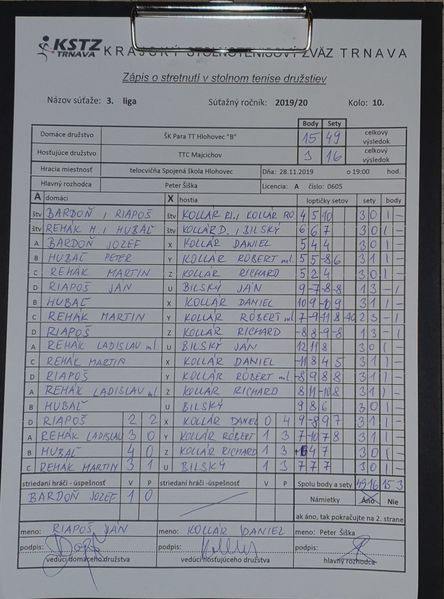 KSTZ TRNAVA KRAJSKÝ STOLNOTENISOVÝ ZVÄZ TRNAVA
Zápis o stretnutí v stolnom tenise družstiev
Názov súťaže: 3. liga Súťažný ročník: 2019/20 Kolo: 10.
Body Sety
Domáce družstvo ŠK Para TT Hlohovec "B" 15 49 celkový výsledok
Hosťujúce družstvo TTC Majcichov 3 16 celkový výsledok
Hracia miestnosť telocvičňa Spojená škola Hlohovec Dňa: 28.11.2019 o 19:00 hod.
Hlavný rozhodca Peter Šiška Licencia: A číslo: 0605
A domáci X hostia loptičky setov sety body
štv BARDOŇ, RIAPOŠ štv KOLLÁR RI., KOLLÁR RO 4 5 10 3 0 1 -
štv REHÁK M., HUBAČ štv KOLLÁR D., BILSKÝ 6 6 7 3 0 1 -
A BARDOŇ JOZEF X KOLLÁR DANIEL 5 4 4 3 0 1 -
B HUBAČ PETER Y KOLLÁR RÓBERT ml. 5 5 -8 6 3 1 1 -
C REHÁK MARTIN Z KOLLÁR RICHARD 5 2 4 3 0 1 -
D RIAPOŠ JÁN U BILSKÝ JÁN 9 -7 -8 -8 1 3 - 1
B HUBAČ X KOLLÁR DANIEL 3 1 1 -
C REHÁK MARTIN Y KOLLÁR RÓBERT ml. 2 3 - 1
D RIAPOŠ Z KOLLÁR RICHARD -8 8 -9 -8 1 3 - 1
A REHÁK LADISLAV ml U BILSKÝ JÁN 12 11 8 3 0 1 -
C REHÁK MARTIN X KOLLÁR DANIEL -11 8 4 5 3 1 1 -
D RIAPOŠ Y KOLLÁR RÓBERT ml. -8 9 8 8 3 1 1 -
A REHÁK LADISLAV ml Z KOLLÁR RICHARD 8 11 -10 8 3 1 1 -
B HUBAČ U BILSKÝ 9 8 6 3 0 1 -
D RIAPOŠ 2 2 X KOLLÁR DANIEL 0 4 9 -8 9 7 3 1 1 -
A REHÁK LADISLAV 3 0 Y KOLLÁR RÓBERT 1 3 7 -10 7 8 3 1 1 -
B HUBAČ 4 0 Z KOLLÁR RICHARD 1 3 6 4 7 3 0 1 -
C REHÁK MARTIN 3 1 U BILSKÝ 1 3 7 7 7 3 0 1 -
striedaní hráči - úspešnosť V P striedaní hráči - úspešnosť V P Spolu body a sety 49 16 15 3
BARDOŇ JOZEF 1 0 Námietky Áno Nie
ak áno, tak pokračujte na 2. strane
meno: RIAPOŠ JÁN meno: KOLLÁR DANIEL meno: Peter Šiška
podpis: podpis: podpis:
vedúci domáceho družstva vedúci hosťujúceho družstva hlavný rozhodca